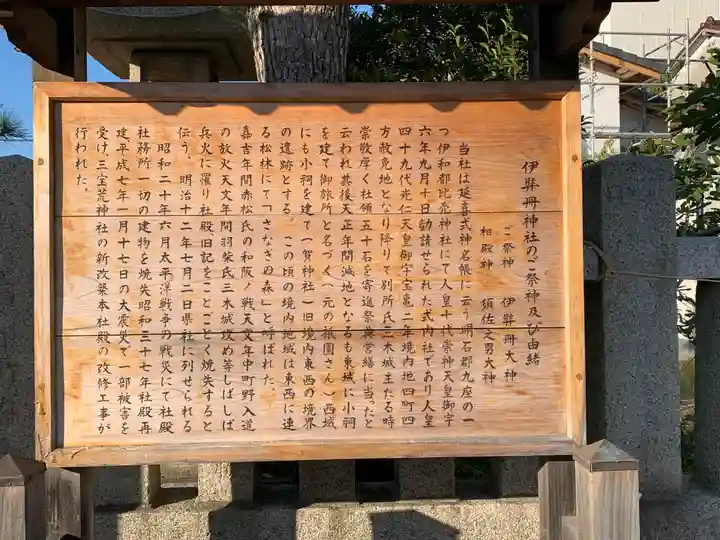 伊弉冊神社のご祭神及び由緒
ご祭神 伊弉冊大神
相殿神 須佐之男大神
当社は延喜式神名帳に云う明石郡九座の一
つ伊和都比売神社にて人皇十代崇神天皇御宇
六年九月十日勧請せられた式内社であり人皇
四十九代光仁天皇御宇宝亀二年境内地四町四
方赦免地となり降りて別所氏三木城主たる時
崇敬厚く社領五十石を寄進祭典営繕に当ったと
云われ其後天正年間減地となるも東域に小祠
を建て御旅所と名づく(元の祇園さん)西域
にも小祠を建て(賀神社)旧境内東西の境界
の遺跡とする。この頃の境内地域は東西に連
る松林にて「さなぎの森」と呼ばれた。
嘉吉年間赤松氏の和阪ノ戦天文年中町野入道
の放火天文年間羽柴氏三木城攻め等しばしば
兵火に罹り社殿旧記をことごとく焼失すると
伝う。明治十二年七月二日県社に列せられる
昭和二十年六月太平洋戦争の戦災にて社殿
社務所一切の建物を焼失昭和三十七年社殿再
建平成七年一月十七日の大震災で一部被害を
受け三宝荒神社の新改築本社殿の改修工事が
行われた。